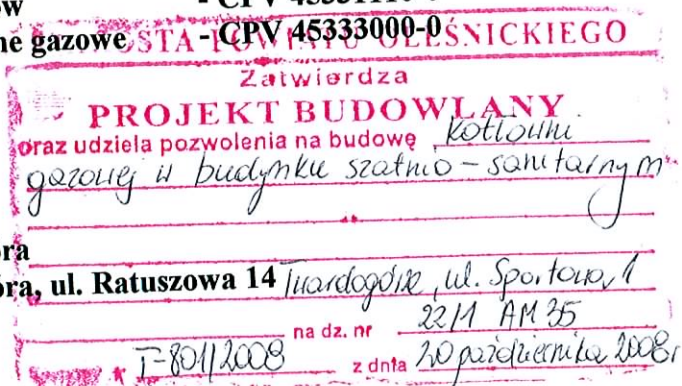 ów - CPV 45331110-0
ne gazowe - CPV 45333000-0
STAROSTA POWIATU OLEŚNICKIEGO
Zatwierdza
PROJEKT BUDOWLANY
oraz udziela pozwolenia na budowę kotłowni
gazowej w budynku szatnio - sanitarnym
óra
óra, ul. Ratuszowa 14 Twardogóra, ul. Sportowa 1
na dz. nr 22/1 AM 35
I-801/2008 z dnia 20 października 2008r